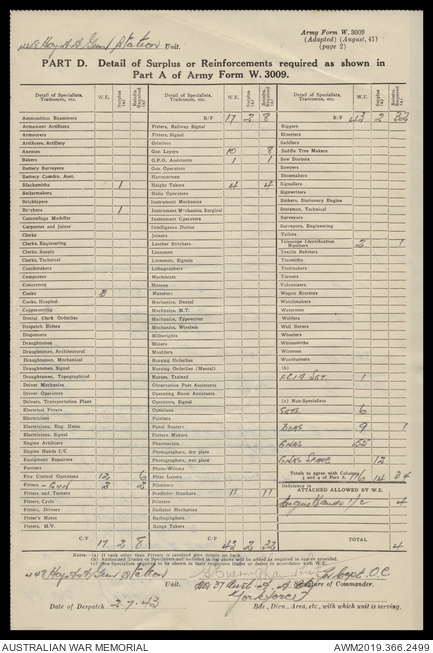 Army Form W. 3009
(Adapted) (August, 41)
(page 2)
448 Hvy A A Gun Station Unit.
PART D. Detail of Surplus or Reinforcements required as shown in
Part A of Army Form W. 3009.
Detail of Specialists, Tradesmen, etc. W.E. Surplus (a) Reinfts. Required (a)
Ammunition Examiners
Armament Artificers
Armourers
Artificers, Artillery
Axemen
Bakers
Battery Surveyors
Blacksmiths 1
Boilermakers
Bricklayers
Butchers 1
Camouflage Modeller
Carpenter and Joiner
Clerks
Clerks, Engineering
Clerks, Supply
Clerks, Technical
Coachmakers
Computers
Concretors
Cooks 3
Cooks, Hospital
Coppersmiths
Dental Clerk Orderlies
Despatch Riders
Dispensers
Draughtsmen
Draughtsmen, Architectural
Draughtsmen, Mechanical
Draughtsmen, Signal
Draughtsmen, Topographical
Driver Mechanics
Driver Operators
Drivers, Transportation Plant
Electrical Fitters
Electricians
Electricians, Eng. Units
Electricians, Signal
Engine Artificers
Engine Hands I/C
Equipment Repairers
Farriers
Fire Control Operators 12 6
Fitters - Gun 2 2
Fitters and Turners
Fitters, Cycle
Fitters, Drivers
Fitter's Mates
Fitters, M.V.
C/F 17 2 8
Detail of Specialists, Tradesmen, etc. W.E. Surplus (a) Reinfts. Required (a)
B/F 17 2 8
Fitters, Railway Signal
Fitters, Signal
Grinders
Gun Layers 10 8
G.P.O. Assistants 1 1
Gun Operators
Hammerman
Height Takers 4 4
Helio Operators
Instrument Mechanics
Instrument Mechanics, Surgical
Instrument Operators
Intelligence Duties
Joiners
Leather Stitchers
Linesmen
Linesmen, Signals
Lithographers
Machinists
Masons
Masseurs
Mechanics, Dental
Mechanics, M.T.
Mechanics, Typewriter
Mechanics, Wireless
Millwrights
Miners
Moulders
Nursing Orderlies
Nursing Orderlies (Mental)
Nurses, Trained
Observation Post Assistants
Operating Room Assistants
Operators, Signal
Opticians
Painters
Panel Beaters
Pattern Makers
Pharmacists
Photographers, dry plate
Photographers, wet plate
Photo-Writers
Plate Layers
Plumbers
Predictor Numbers 11 11
Printers
Radiator Mechanics
Radiographers
Range Takers
C/F 43 2 32
Detail of Specialists, Tradesmen, etc. W.E. Surplus (a)
B/F 43 2 32
Riggers
Rivetters
Saddlers
Saddle Tree Makers
Saw Doctors
Sawyers
Shoemakers
Signallers
Signwriters
Stokers, Stationary Engine
Storemen, Technical
Surveyors
Surveyors, Engineering
Tailors
Telescope Identification Numbers 2 1
Textile Refitters
Tinsmiths
Toolmakers
Turners
Vulcanizers
Wagon Erectors
Watchmakers
Watermen
Welders
Well Borers
Wheelers
Whitesmiths
Wiremen
Woodturners
(b)
1
(c) Non-Specialists
Sgts 6
Bdrs 9 1
Gnrs 55
Gnrs Spare 12
Totals to agree with Columns 116 14 34
Deficiency in
ATTACHED ALLOWED BY W.E.
Engine Hands I/C 4
TOTAL 4
Note:—(a) If rank other than Private is involved give details on back.
(b) Authorized Trades or Specialists not included in the above will be added as required in spaces provided.
(c) Non-specialists required to be shown in their respective trades or duties in accordance with W.E.
448 Hvy A A Gun Station Unit.
Capt. O.C
Signature of Commander.
Yorkforce
Bde., Divn., Area, etc., with which unit is serving.
Date of Despatch 2.7.43
AUSTRALIAN WAR MEMORIAL
AWM2019.366.2499